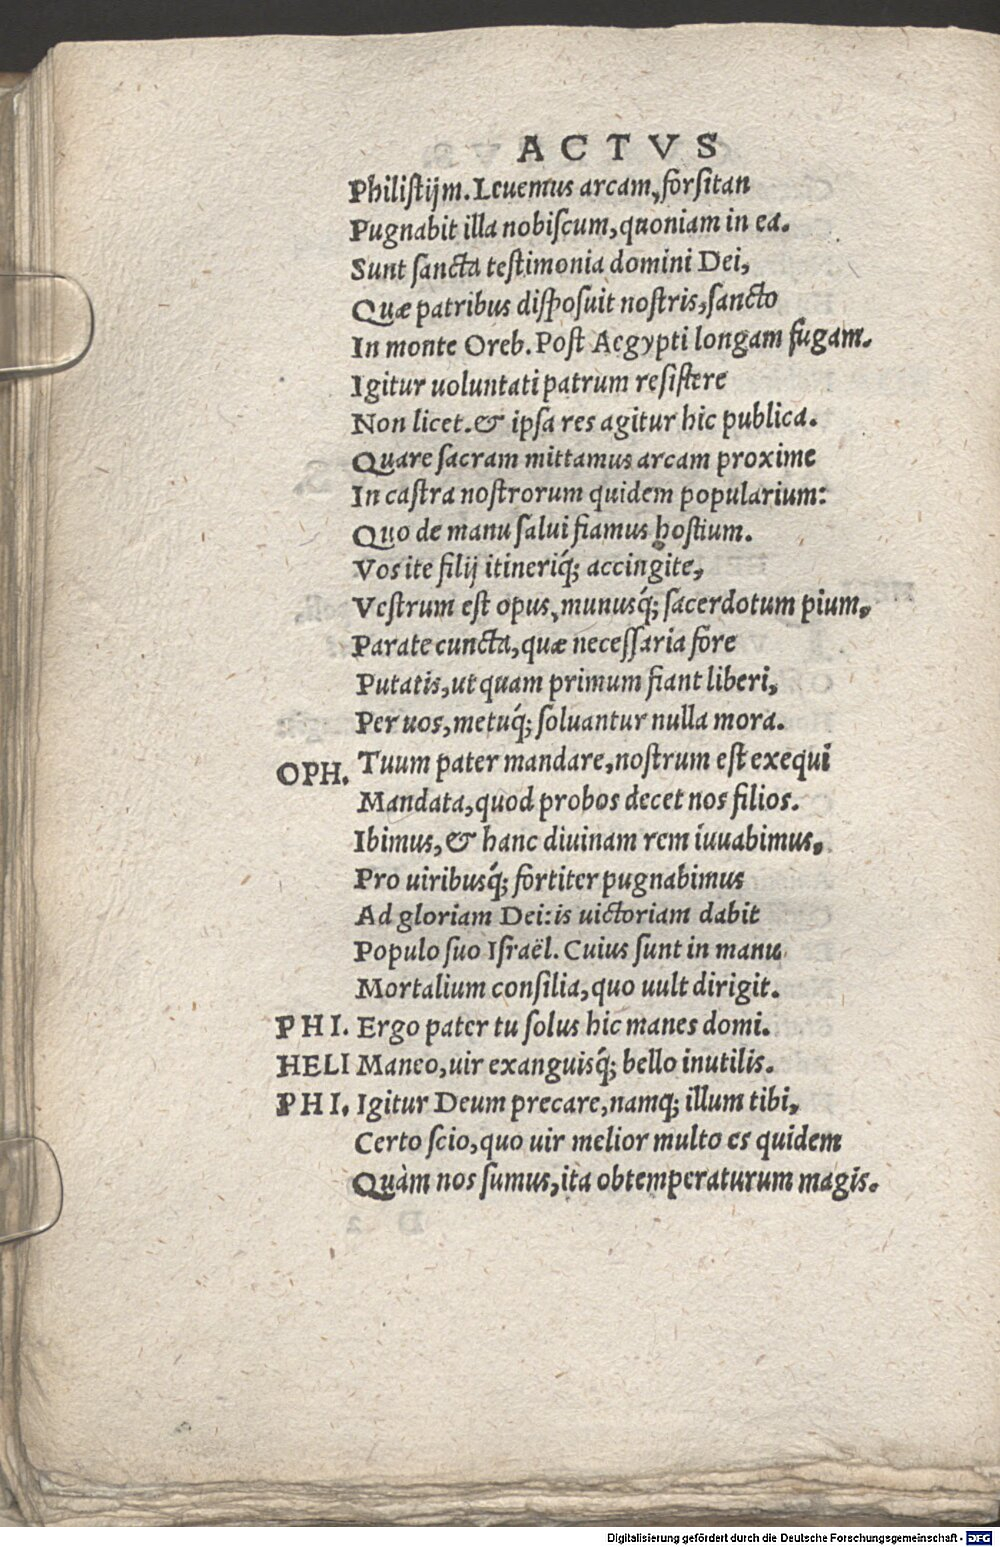 ACTVS
Philiſtijm. Leuemus arcam, forſitan
Pugnabit illa nobiſcum, quoniam in ea.
Sunt ſancta teſtimonia domini Dei,
Quæ patribus diſpoſuit noſtris, ſancto
In monte Oreb. Poſt Aegypti longam fugam.
Igitur uoluntati patrum reſiſtere
Non licet. & ipſa res agitur hic publica.
Quare ſacram mittamus arcam proxime
In caſtra noſtrorum quidem popularium:
Quo de manu ſalui fiamus hoſtium.
Vos ite filij itineriq́; accingite,
Veſtrum eſt opus, munusq́; ſacerdotum pium,
Parate cuncta, quæ neceſſaria fore
Putatis, ut quam primum fiant liberi,
Per uos, metuq́; ſoluantur nulla mora.
OPH. Tuum pater mandare, noſtrum eſt exequi
Mandata, quod probos decet nos filios.
Ibimus, & hanc diuinam rem iuuabimus,
Pro uiribusq́; fortiter pugnabimus
Ad gloriam Dei: is uictoriam dabit
Populo ſuo Iſraël. Cuius ſunt in manu
Mortalium conſilia, quo uult dirigit.
PHI. Ergo pater tu ſolus hic manes domi.
HELI Maneo, uir exanguisq́; bello inutilis.
PHI. Igitur Deum precare, namq; illum tibi,
Certo ſcio, quo uir melior multo es quidem
Quàm nos ſumus, ita obtemperaturum magis.
Digitalisierung gefördert durch die Deutsche Forschungsgemeinschaft - DFG